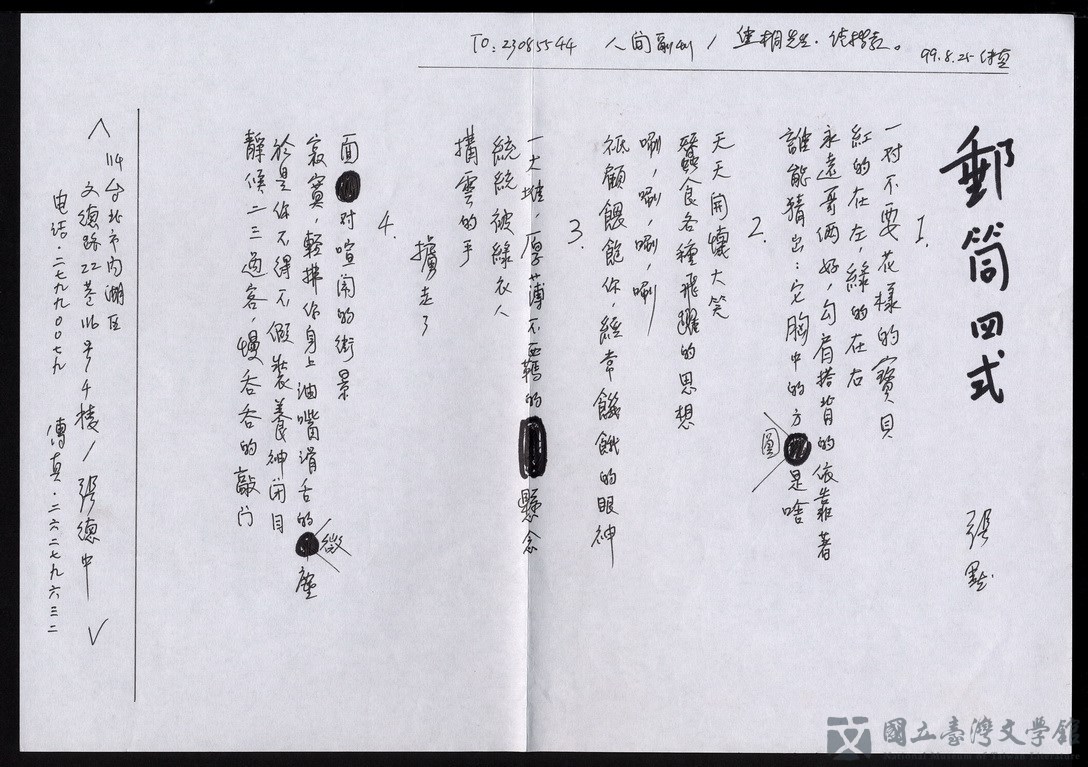 TO:23085544 人间副刊/焦桐先生.
99.8.25傳真
郵筒四式
張默
1.
一对不要花樣的寶貝
紅的在左,綠的在右
永遠哥倆好,勾肩搭背的依靠著
誰能猜出:它胸中的方圓是啥
2.
天天開懷大笑
蠶食各種飛躍的思想
唰,唰,唰,唰
3.
祇顧餵飽你,經常饑餓的眼神
一大堆,厚薄不西的懸念
統統被綠衣人
擄走了
搆雲的手
4.
面对喧闹的街景
寂寞,輕拂你身上油嘴滑舌的微塵
於是你不得不假裝養神闭目
靜候二三過客,慢吞吞的敲门
114台北市内湖区
文德路22巷116号4楼/張德中
电话.二七九九〇〇七九
傳真.二六二七九六三二
國立臺灣文學館
National Museum of Taiwan Literature